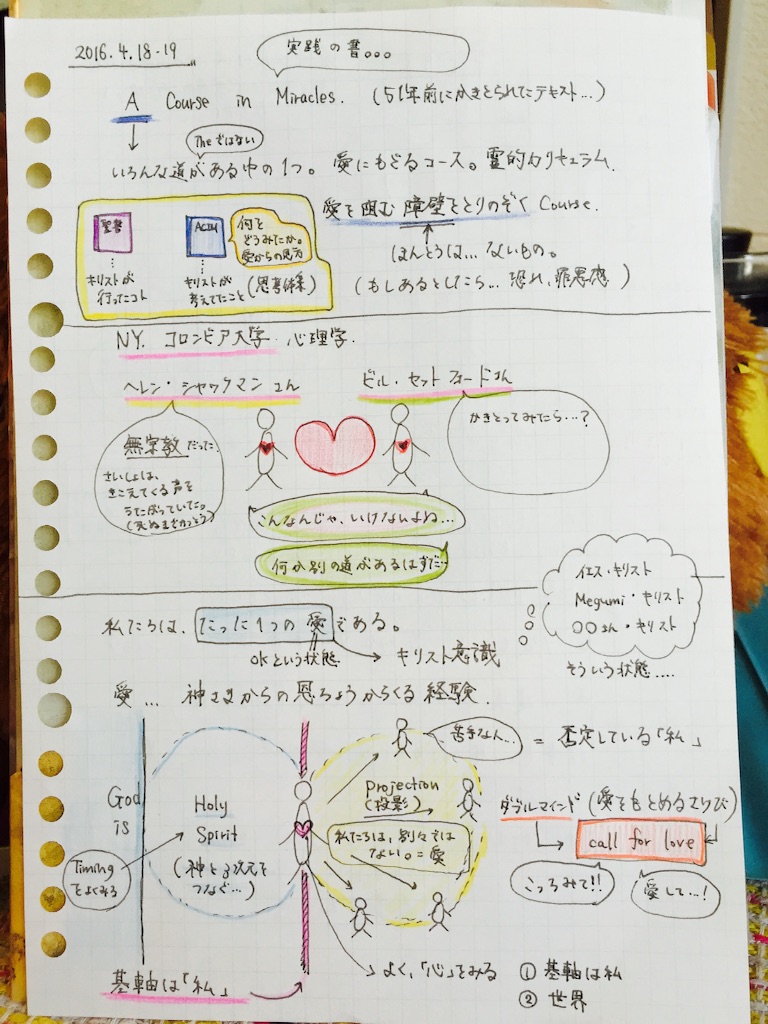 2016.4.18-19
実践の書。。。
A Course in Miracles. (51年前にかきとられたテキスト...)
Theではない
いろんな道がある中の1つ。愛にもどるコース。霊的カリキュラム.
愛を阻む障壁をとりのぞく Course.
ほんとうは... ないもの。
(もしあるとしたら... 恐れ、罪悪感)
聖書
ACIM
何を
どうみたか。
愛からの見方
(思考体系)
キリストが
行ったコト
キリストが
考えてたこと
NY. コロンビア大学 心理学.
ヘレン・シャックマン さん
ビル・セットフォードさん
無宗教だった.
さいしょは、
きこえてくる声を
うたがっていた。
(死ぬまでかっとう)
かきとってみたら...?
こんなんじゃ、いけないよね...
何か別の道があるはずだ...
イエス・キリスト
Megumi・キリスト
○○さん・キリスト
そういう状態....
私たちは、たった1つの愛である。
OKという状態
キリスト意識
愛... 神さまからの恩ちょうからくる経験.
God
is
Holy
Spirit
(神と3次元を
つなぐ...)
Timing
をよくみる
苦手なん...
= 否定している「私」
projection
(投影)
私たちは、別々では
ない。= 愛
ダブルマインド (愛をもとめるさけび)
call for love
こっちみて!!
愛して...!
よく、「心」をみる
① 基軸は私
② 世界
基軸は「私」